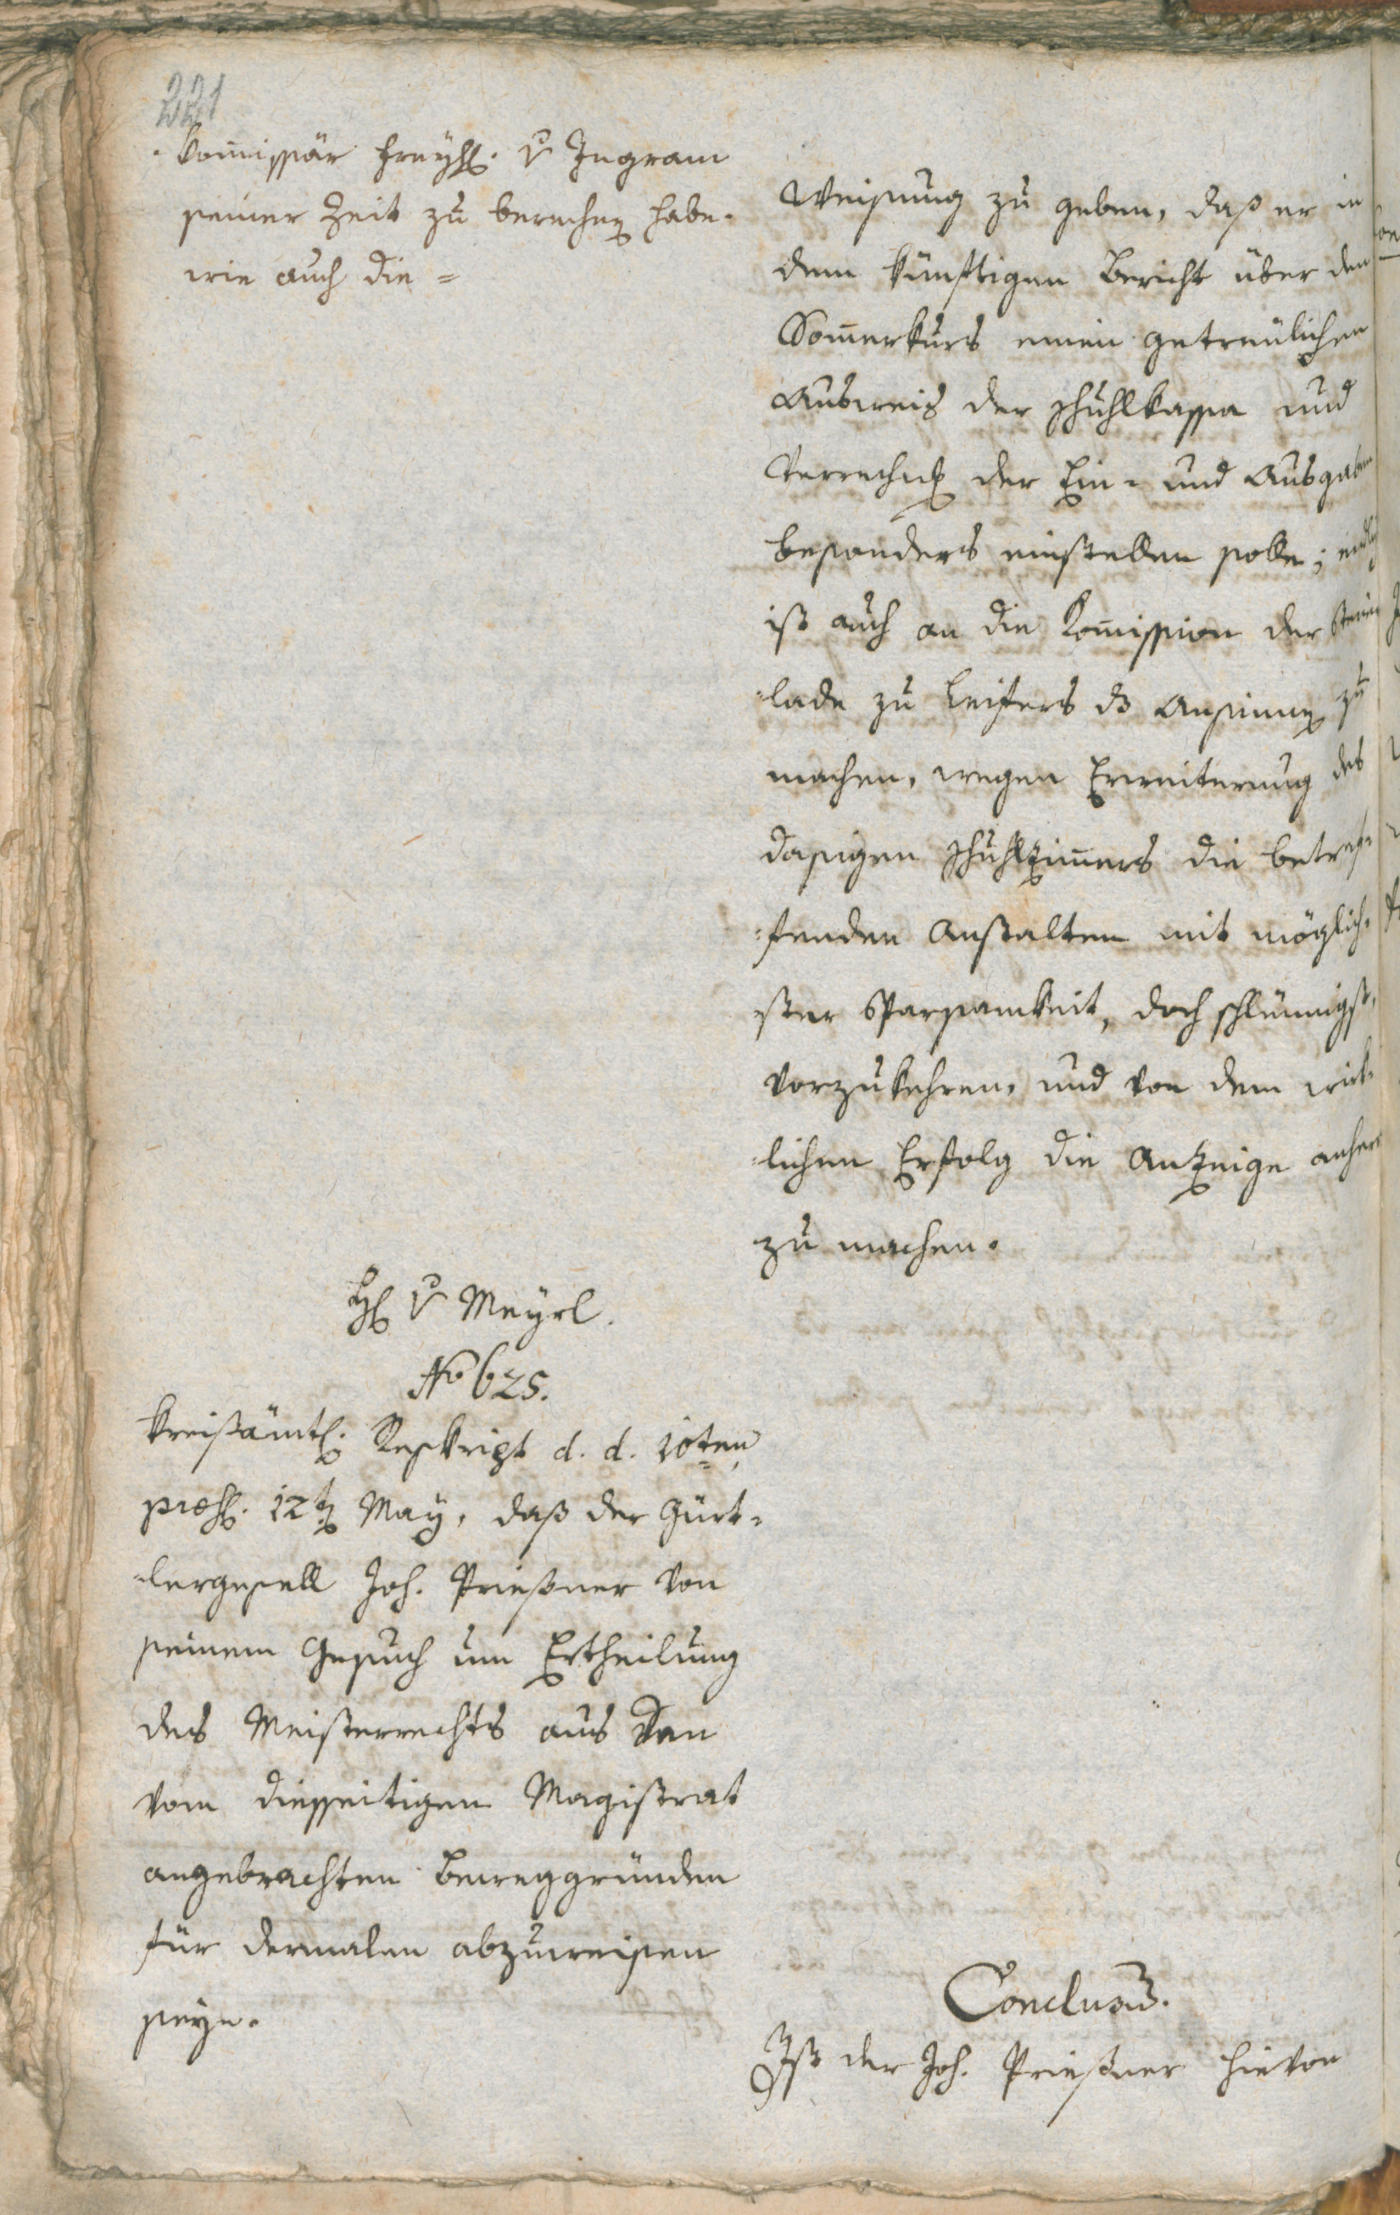 221
Kom̃issär Freyh. v Ingram
seiner Zeit zu berechen habe.
wie auch die =
Weisung zu geben, daß er in
dem künftigen Bericht über den
Som̃erkurs einen getreulichen
Ausweis der Schuhlkassa und
Verrechng der Ein- und Ausgaben
besonders einstellen solle; endlich
ist auch an die Kom̃ission der
lade zu Leifers das Ansinnen zu
machen, wegen Erweiterung des
dasigen Schuhlzim̃ers die betref-
fenden Anstalten mit möglich-
ster Sparsamkeit, doch schleunigst,
vorzukehren, und von dem wirk-
lichen Erfolg die Anzeige anhero
zu machen.
H v Meyrl.
No 625.
Kreisämtl. Reskript d. d. 10ten
praes. 12t May, daß der Gürt-
lergesell Joh. Prießner von
seinem Gesuch um Ertheilung
des Meisterrechts aus den
vom diesseitigen Magistrat
angebrachten Beweggründen
für dermalen abzuweisen
seye.
Conclusum.
Ist der Joh. Prießner hievon